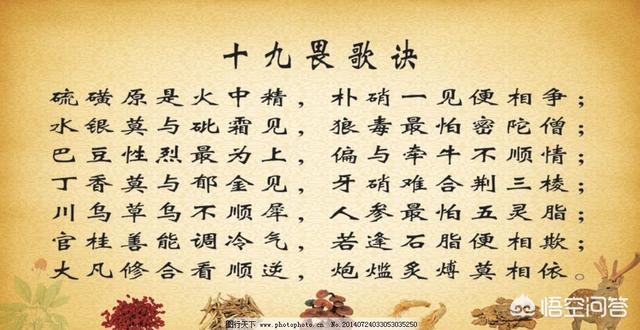 十九畏歌诀
硫磺原是火中精，朴硝一见便相争；
水银莫与砒霜见，狼毒最怕密陀僧；
巴豆性烈最为上，偏与牵牛不顺情；
丁香莫与郁金见，牙硝难合荆三棱；
川乌草乌不顺犀，人参最怕五灵脂；
官桂善能调冷气，若逢石脂便相欺；
大凡修合看顺逆，炮爁炙煿莫相依。
图行天下 PHOTOPHOTO.CN No.20140724033053035250
悟空问答